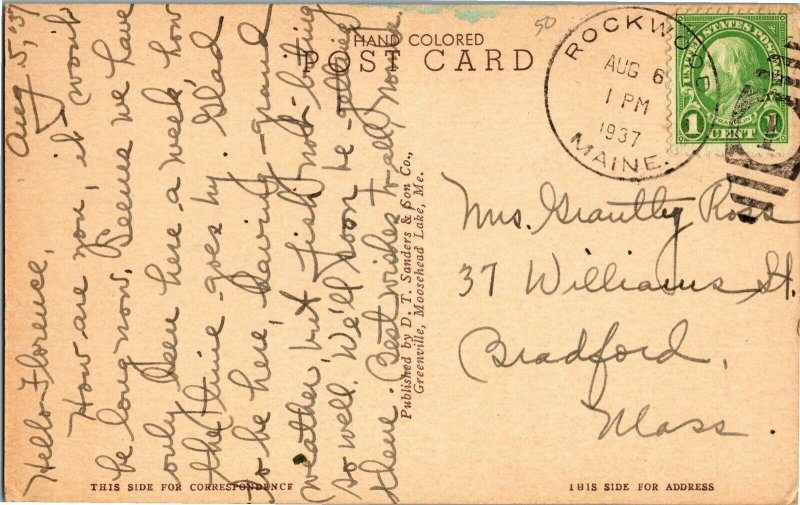 Aug 5, '37
Hello Florence,
How are you, it won't
be long now. Seems we have
only been here a week how
the time goes by. Glad
to be here, having grand
weather, but fish not biting
so well. We'll soon be
there. Best wishes to all,
HAND COLORED
POST CARD
50
ROCKWOOD
AUG 6
1 PM
1937
MAINE.
UNITED STATES POSTAGE
FRANKLIN
1 CENT 1
Mrs. Grantly Ross
37 Williams St.
Bradford,
Mass.
Published by D. T. Sanders & Son Co.,
Greenville, Moosehead Lake, Me.
THIS SIDE FOR CORRESPONDENCE
THIS SIDE FOR ADDRESS